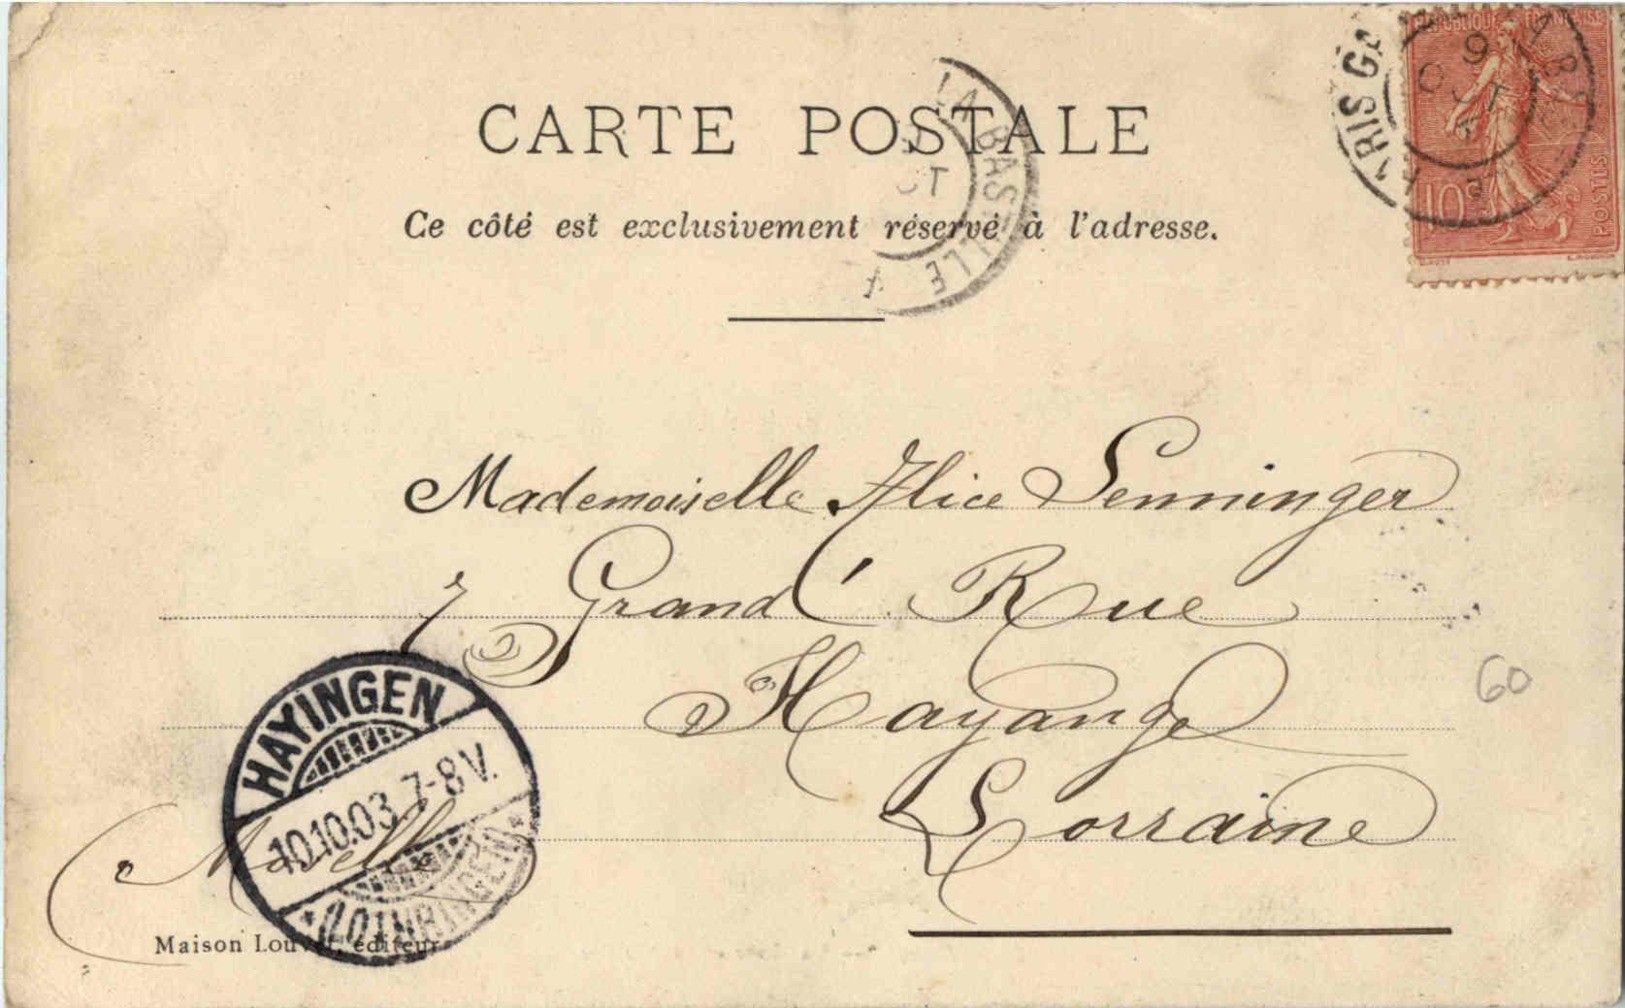 CARTE POSTALE
Ce côté est exclusivement réservé à l'adresse.
RÉPUBLIQUE FRANÇAISE
10c
POSTES
PARIS GA
9
OCT
LA BASTILLE
OCT
Mademoiselle Alice Senninger
7 Grand' Rue
Hayange
Lorraine
60
HAYINGEN
10.10.03. 7-8V.
*(LOTHRINGEN)*
Maison Louvet, éditeur